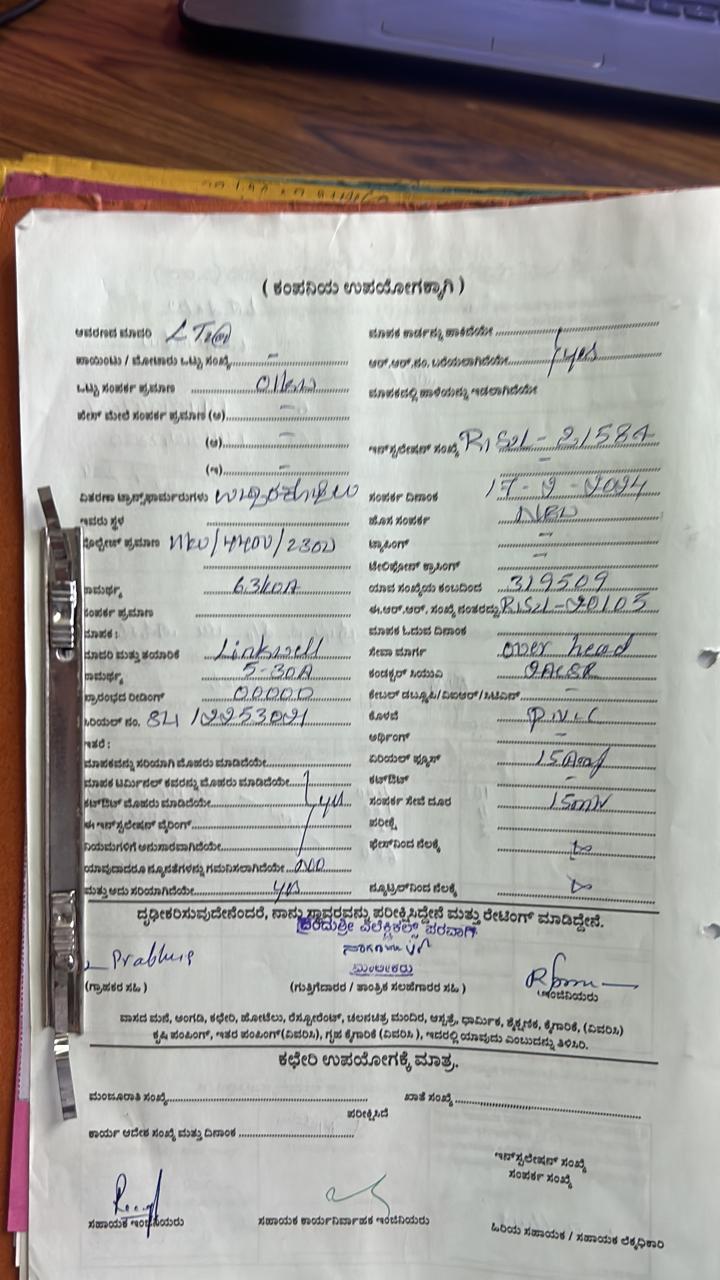 ( ಕಂಪನಿಯ ಉಪಯೋಗಕ್ಕಾಗಿ )
ಆವರಣದ ಮಾದರಿ LT2(a)
ಮಾಪಕ ಕಾರ್ಡನ್ನು ಹಾಕಿದೆಯೇ
ಪಾಯಿಂಟು / ಮೋಟಾರು ಒಟ್ಟು ಸಂಖ್ಯೆ -
ಆರ್.ಆರ್.ನಂ. ಬರೆಯಲಾಗಿದೆಯೇ yes
ಒಟ್ಟು ಸಂಪರ್ಕ ಪ್ರಮಾಣ 01kw
ಮಾಪಕದಲ್ಲಿ ಹಾಳೆಯನ್ನು ಇಡಲಾಗಿದೆಯೇ
ಪೇಸ್ ಮೇಲೆ ಸಂಪರ್ಕ ಪ್ರಮಾಣ (ಅ) -
(ಆ) -
ಇನ್‌ಸ್ಟಲೇಷನ್ ಸಂಖ್ಯೆ
(ಇ) -
ವಿತರಣಾ ಟ್ರಾನ್ಸ್‌ಫಾರ್ಮರುಗಳು
ಸಂಪರ್ಕ ದಿನಾಂಕ
ಇವರು ಸ್ಥಳ
ಹೊಸ ಸಂಪರ್ಕ NEW
ಪ್ರಮಾಣ 11kv/440v/230v
ಟ್ಯಾಪಿಂಗ್ -
ಟೆಲಿಫೋನ್ ಕ್ರಾಸಿಂಗ್ -
63kVA
ಯಾವ ಸಂಖ್ಯೆಯ ಕಂಬದಿಂದ 319509
ಸಂಪರ್ಕ ಪ್ರಮಾಣ
ಈ.ಆರ್.ಆರ್. ಸಂಖ್ಯೆ ನಂತರದ್ದು
ಮಾಪಕ :
ಮಾಪಕ ಓದುವ ದಿನಾಂಕ
ಮಾದರಿ ಮತ್ತು ತಯಾರಿಕೆ Linkwell
ಸೇವಾ ಮಾರ್ಗ over head
5-30A
ಪ್ರಾರಂಭದ ರೀಡಿಂಗ್ 00000
ಸೀರಿಯಲ್ ನಂ.
ಕೊಳವೆ P.V.C
ಇತರೆ :
ಅರ್ಥಿಂಗ್ -
ಮಾಪಕವನ್ನು ಸರಿಯಾಗಿ ಮೊಹರು ಮಾಡಿದೆಯೇ
ಏರಿಯಲ್ ಫ್ಯೂಸ್ 15Amp
ಮಾಪಕ ಟರ್ಮಿನಲ್ ಕವರನ್ನು ಮೊಹರು ಮಾಡಿದೆಯೇ
ಕಟ್‌ಔಟ್ -
ಕಟ್‌ಔಟ್ ಮೊಹರು ಮಾಡಿದೆಯೇ yes
ಸಂಪರ್ಕ ಸೇವೆ ದೂರ
ಈ ಇನ್‌ಸ್ಟಲೇಷನ್ ವೈರಿಂಗ್
ಪರೀಕ್ಷೆ
ನಿಯಮಗಳಿಗೆ ಅನುಸಾರವಾಗಿದೆಯೇ
ಫೇಸ್‌ನಿಂದ ನೆಲಕ್ಕೆ
ಯಾವುದಾದರೂ ನ್ಯೂನತೆಗಳನ್ನು ಗಮನಿಸಲಾಗಿದೆಯೇ
ಮತ್ತು ಅದು ಸರಿಯಾಗಿದೆಯೇ yes
ನ್ಯೂಟ್ರಲ್‌ನಿಂದ ನೆಲಕ್ಕೆ
ದೃಢೀಕರಿಸುವುದೇನೆಂದರೆ, ನಾನು ಸ್ಥಾವರವನ್ನು ಪರೀಕ್ಷಿಸಿದ್ದೇನೆ ಮತ್ತು ರೇಟಿಂಗ್ ಮಾಡಿದ್ದೇನೆ.
ಎಲೆಕ್ಟ್ರಿಕಲ್ಸ್ ಪರವಾಗಿ
ಮಾಲೀಕರು
(ಗ್ರಾಹಕರ ಸಹಿ )
(ಗುತ್ತಿಗೆದಾರರ / ತಾಂತ್ರಿಕ ಸಲಹೆಗಾರರ ಸಹಿ )
ಇಂಜಿನಿಯರು
ವಾಸದ ಮನೆ, ಅಂಗಡಿ, ಕಛೇರಿ, ಹೋಟೆಲು, ರೆಸ್ಟೋರೆಂಟ್, ಚಲನಚಿತ್ರ ಮಂದಿರ, ಆಸ್ಪತ್ರೆ, ಧಾರ್ಮಿಕ, ಶೈಕ್ಷಣಿಕ, ಕೈಗಾರಿಕೆ, (ವಿವರಿಸಿ)
ಕೃಷಿ ಪಂಪಿಂಗ್, ಇತರ ಪಂಪಿಂಗ್(ವಿವರಿಸಿ), ಗೃಹ ಕೈಗಾರಿಕೆ (ವಿವರಿಸಿ ), ಇದರಲ್ಲಿ ಯಾವುದು ಎಂಬುದನ್ನು ತಿಳಿಸಿರಿ.
ಕಛೇರಿ ಉಪಯೋಗಕ್ಕೆ ಮಾತ್ರ.
ಮಂಜೂರಾತಿ ಸಂಖ್ಯೆ
ಖಾತೆ ಸಂಖ್ಯೆ
ಪರೀಕ್ಷಿಸಿದೆ
ಕಾರ್ಯ ಆದೇಶ ಸಂಖ್ಯೆ ಮತ್ತು ದಿನಾಂಕ
ಇನ್‌ಸ್ಟಲೇಷನ್ ಸಂಖ್ಯೆ
ಸಂಪರ್ಕ ಸಂಖ್ಯೆ
ಸಹಾಯಕ ಇಂಜಿನಿಯರು
ಸಹಾಯಕ ಕಾರ್ಯನಿರ್ವಾಹಕ ಇಂಜಿನಿಯರು
ಹಿರಿಯ ಸಹಾಯಕ / ಸಹಾಯಕ ಲೆಕ್ಕಾಧಿಕಾರಿ